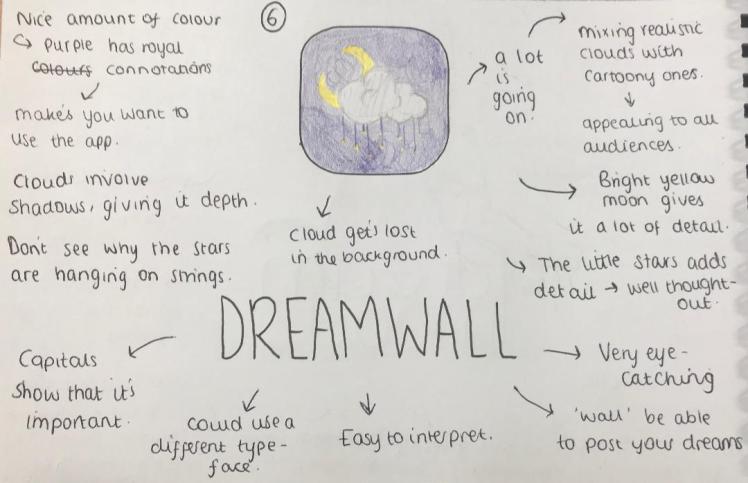 Nice amount of colour
↳ purple has royal
colours connotations
↓
makes you want to
use the app.
Clouds involve
shadows, giving it depth.
Don't see why the stars
are hanging on strings.
⑥
a lot
is
going
on.
mixing realistic
clouds with
cartoony ones.
↓
appealing to all
audiences.
Bright yellow
moon gives
it a lot of detail.
The little stars adds
detail → well thought-
out.
cloud get's lost
in the background.
DREAMWALL
Capitals
show that it's
important.
could use a
different type-
face.
Easy to interpret.
Very eye-
catching
'wall' be able
to post your dreams